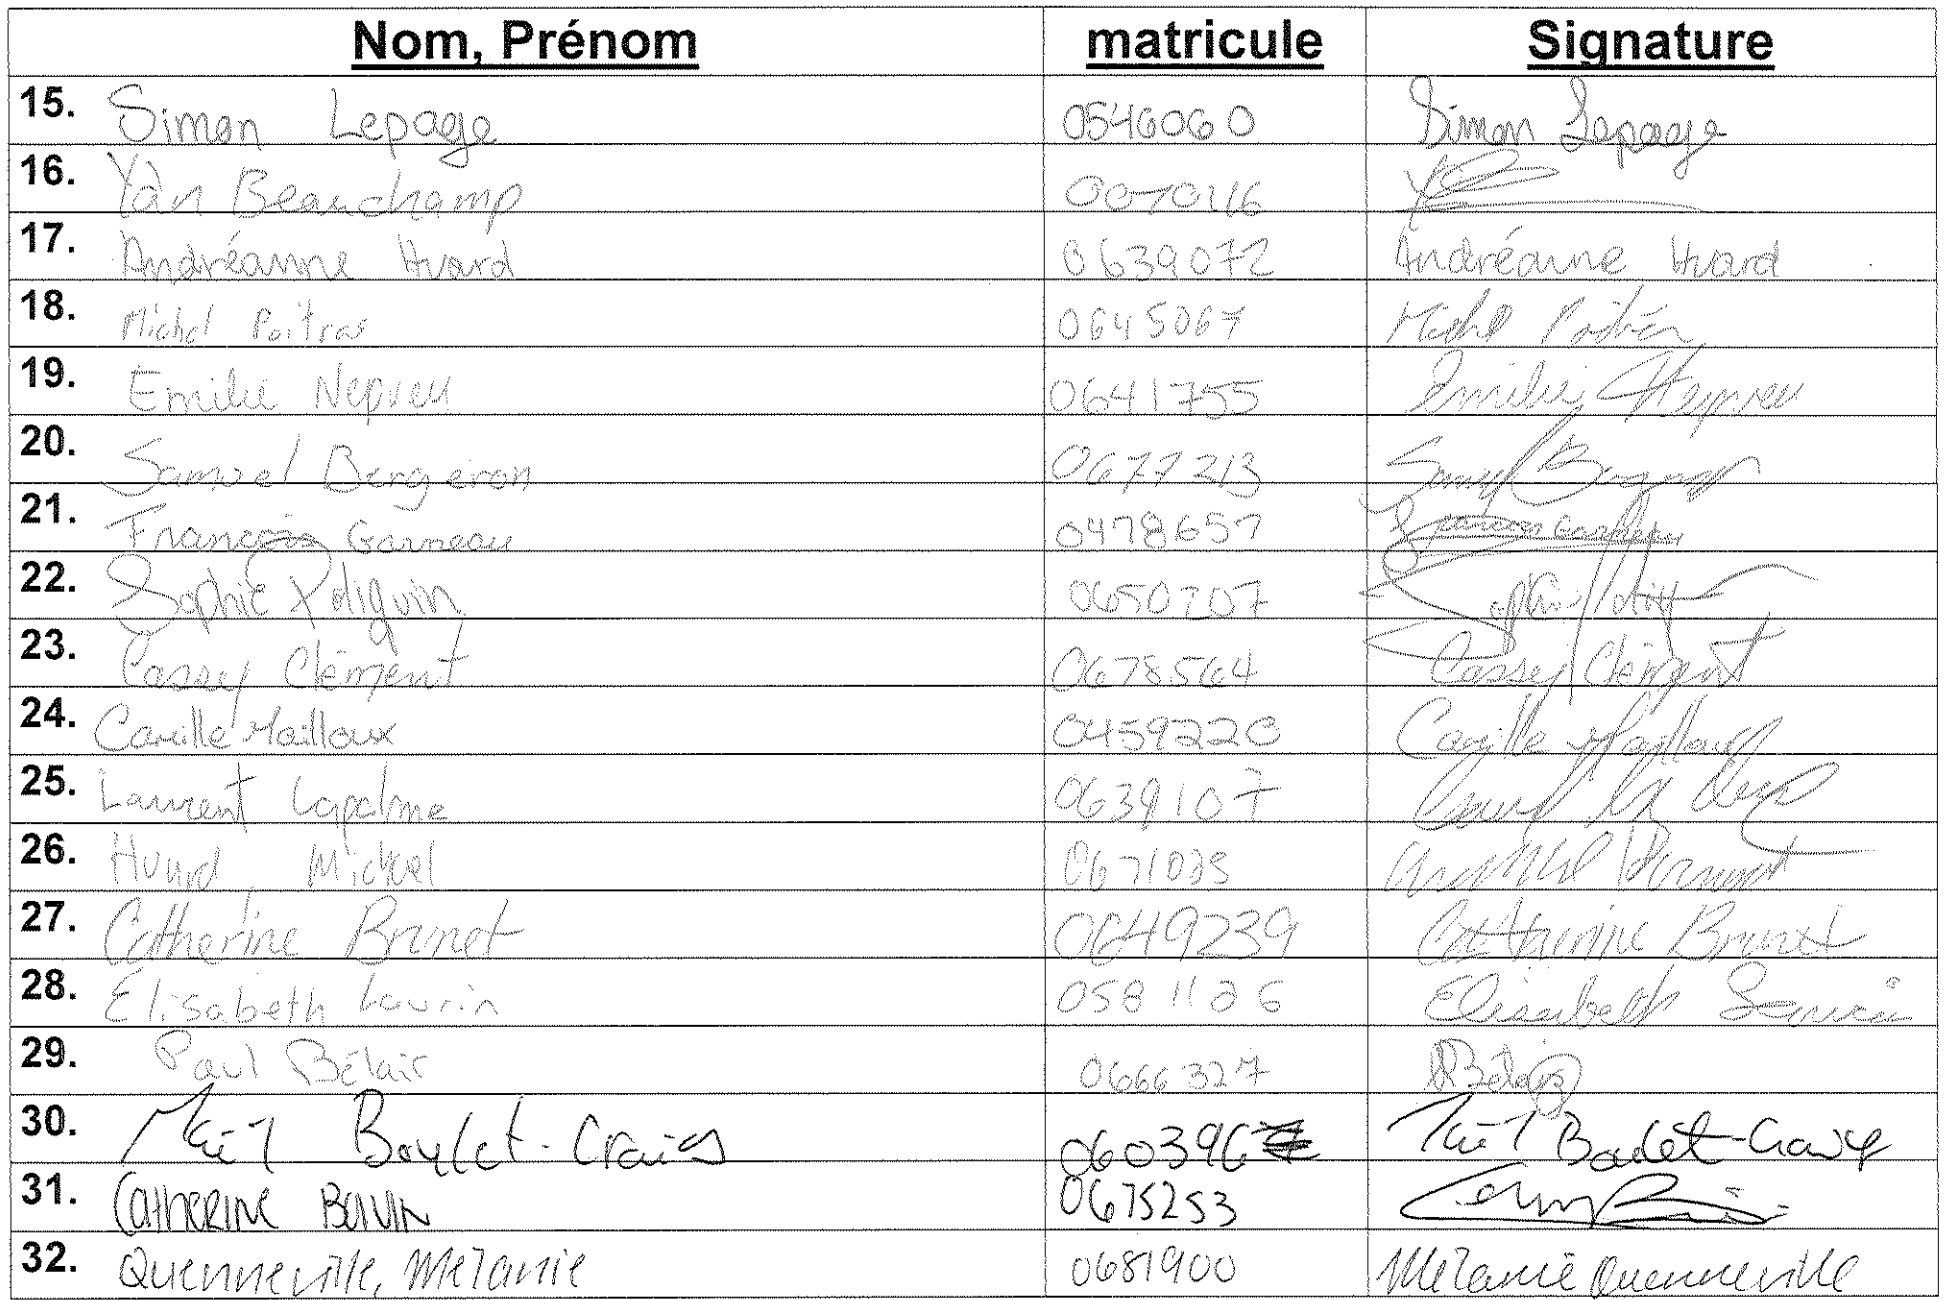 Nom, Prénom matricule Signature
15. Simon Lepage 0546060 Simon Lepage
16. Yan Beauchamp 0070116
17. Andréanne Huard 0639072 Andréanne Huard
18. Michel Poitras 0645067 Michel Poitras
19. Emilie Nepveu 0641755 Emilie Nepveu
20. Samuel Bergeron 0677213 Samuel Bergeron
21. François Garneau 0478657 François Garneau
22. Sophie Poliquin 0650207
23. Cassey Clément 0678564 Cassey Clément
24. Camille Mailloux 0459220 Camille Mailloux
25. Laurent Lapalme 0639107
26. Huard, Mickel 0671035
27. Catherine Brunet 0649239 Catherine Brunet
28. Élisabeth Laurin 0581126 Elisabeth Laurin
29. Paul Bélair 0666327 PBélair
30. Maïl Boulet-Craig 060396 Maïl Boulet-Craig
31. CATHERINE BOIVIN 0675253
32. Quenneville, Mélanie 0681900 Mélanie Quenneville